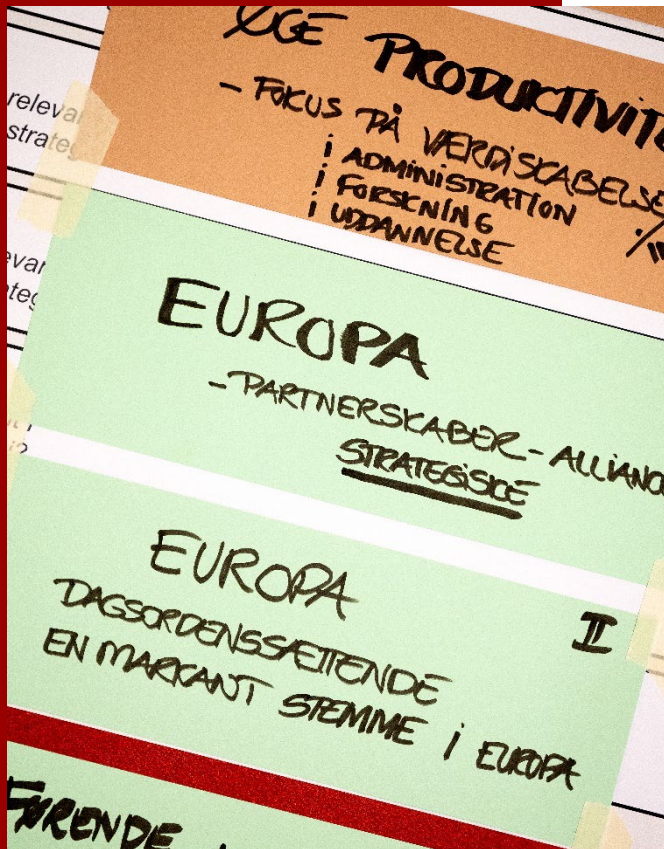 ØGE PRODUKTIVITE
- FOKUS PÅ VÆRDISKABELSE
i ADMINISTRATION
i FORSKNING
i UDDANNELSE
EUROPA
- PARTNERSKABER - ALLIANC
STRATEGISKE
EUROPA
II
DAGSORDENSSÆTTENDE
EN MARKANT STEMME i EUROPA
FØRENDE